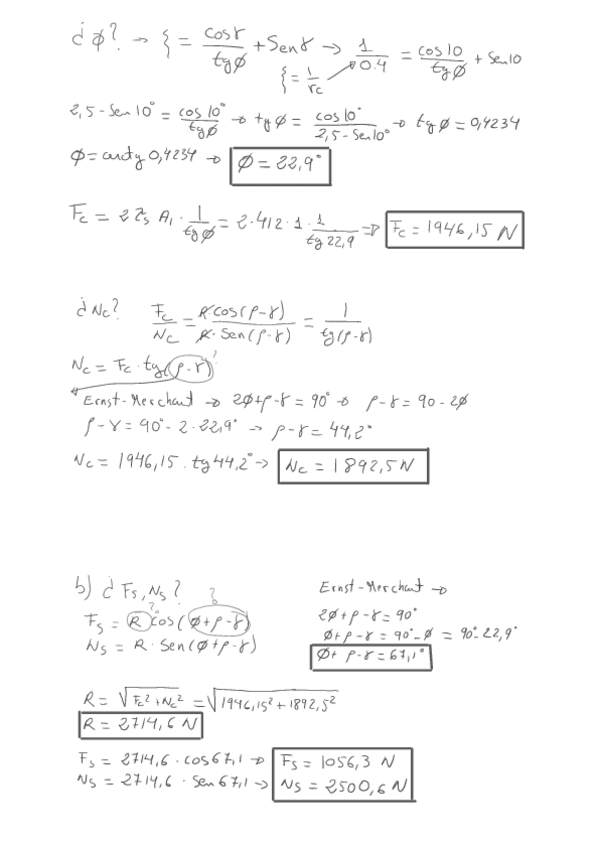 ¿ϕ? → ξ = cosγ/tgϕ + Senγ → 1/0.4 = cos10/tgϕ + Sen10
ξ = 1/rc
2,5 - Sen 10° = cos 10°/tgϕ → tgϕ = cos 10°/2,5 - Sen10° → tgϕ = 0,4234
ϕ = arctg 0,4234 → ϕ = 22,9°
Fc = 2 τs A1 · 1/tgϕ = 2·412·1·1/tg 22,9 ⇒ Fc = 1946,15 N
¿Nc? Fc/Nc = R cos(ρ-γ)/R·Sen(ρ-γ) = 1/tg(ρ-γ)
Nc = Fc · tg(ρ-γ)?
Ernst-Merchant → 2ϕ+ρ-γ = 90° → ρ-γ = 90-2ϕ
ρ-γ = 90° - 2·22,9° → ρ-γ = 44,2°
Nc = 1946,15 · tg44,2° → Nc = 1892,5 N
b) ¿Fs, Ns?
Fs = R cos(ϕ+ρ-γ)
? ?
Ns = R · Sen(ϕ+ρ-γ)
Ernst-Merchant →
2ϕ+ρ-γ = 90°
ϕ+ρ-γ = 90°-ϕ = 90°-22,9°
ϕ+ρ-γ = 67,1°
R = √Fc²+Nc² = √1946,15²+1892,5²
R = 2714,6 N
Fs = 2714,6 · cos67,1 → Fs = 1056,3 N
Ns = 2714,6 · Sen67,1 → Ns = 2500,6 N